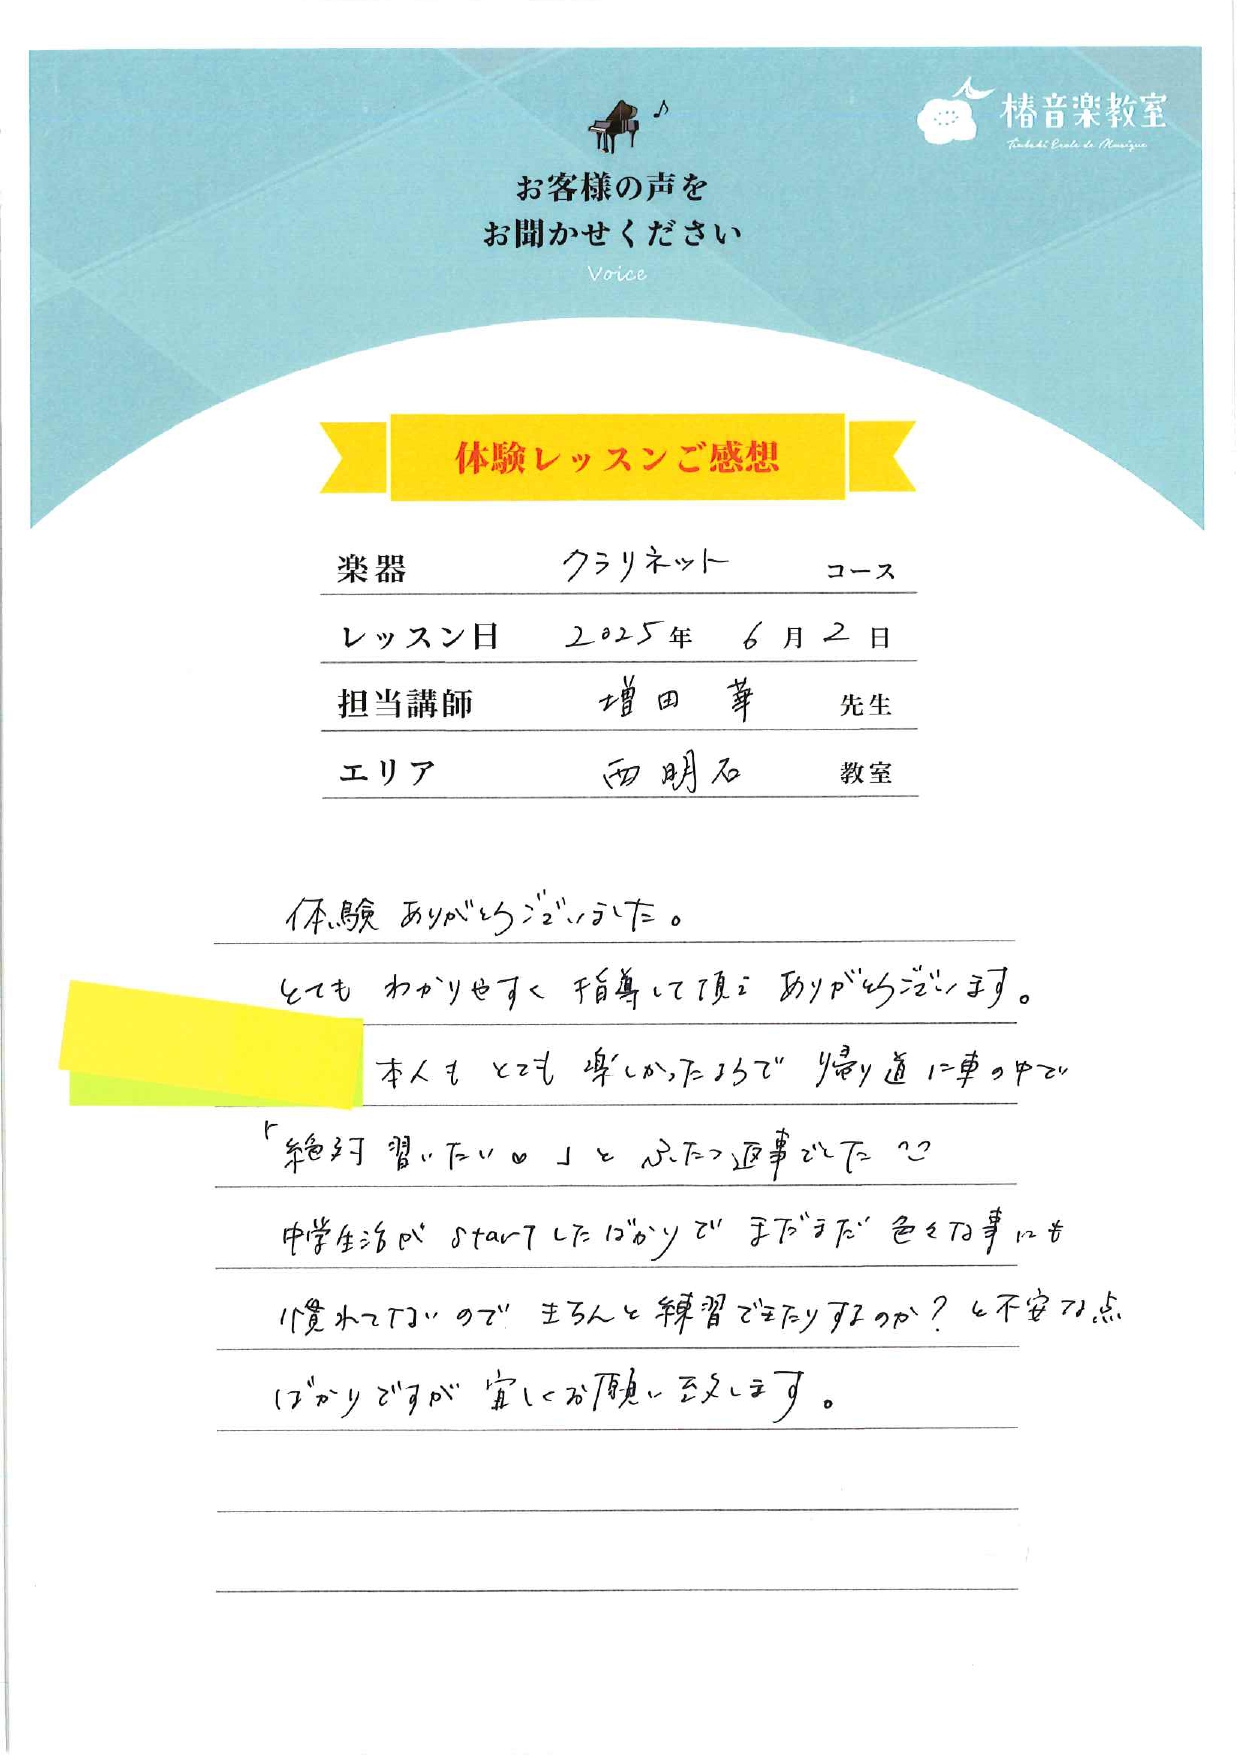 椿音楽教室
Tsubaki Ecole de Musique
お客様の声を
お聞かせください
Voice
体験レッスンご感想
楽器 クラリネット コース
レッスン日 2025年 6月2日
担当講師 増田 華 先生
エリア 西明石 教室
体験 ありがとうございました。
とても わかりやすく 指導して頂き ありがとうございます。
本人も とても 楽しかったようで 帰り道に車の中で
「絶対 習いたい♡」と ふたつ返事でした
中学生活が startしたばかりで まだまだ 色々な事にも
慣れてないので きちんと練習できたりするのか？と不安な点
ばかりですが 宜しくお願い致します。